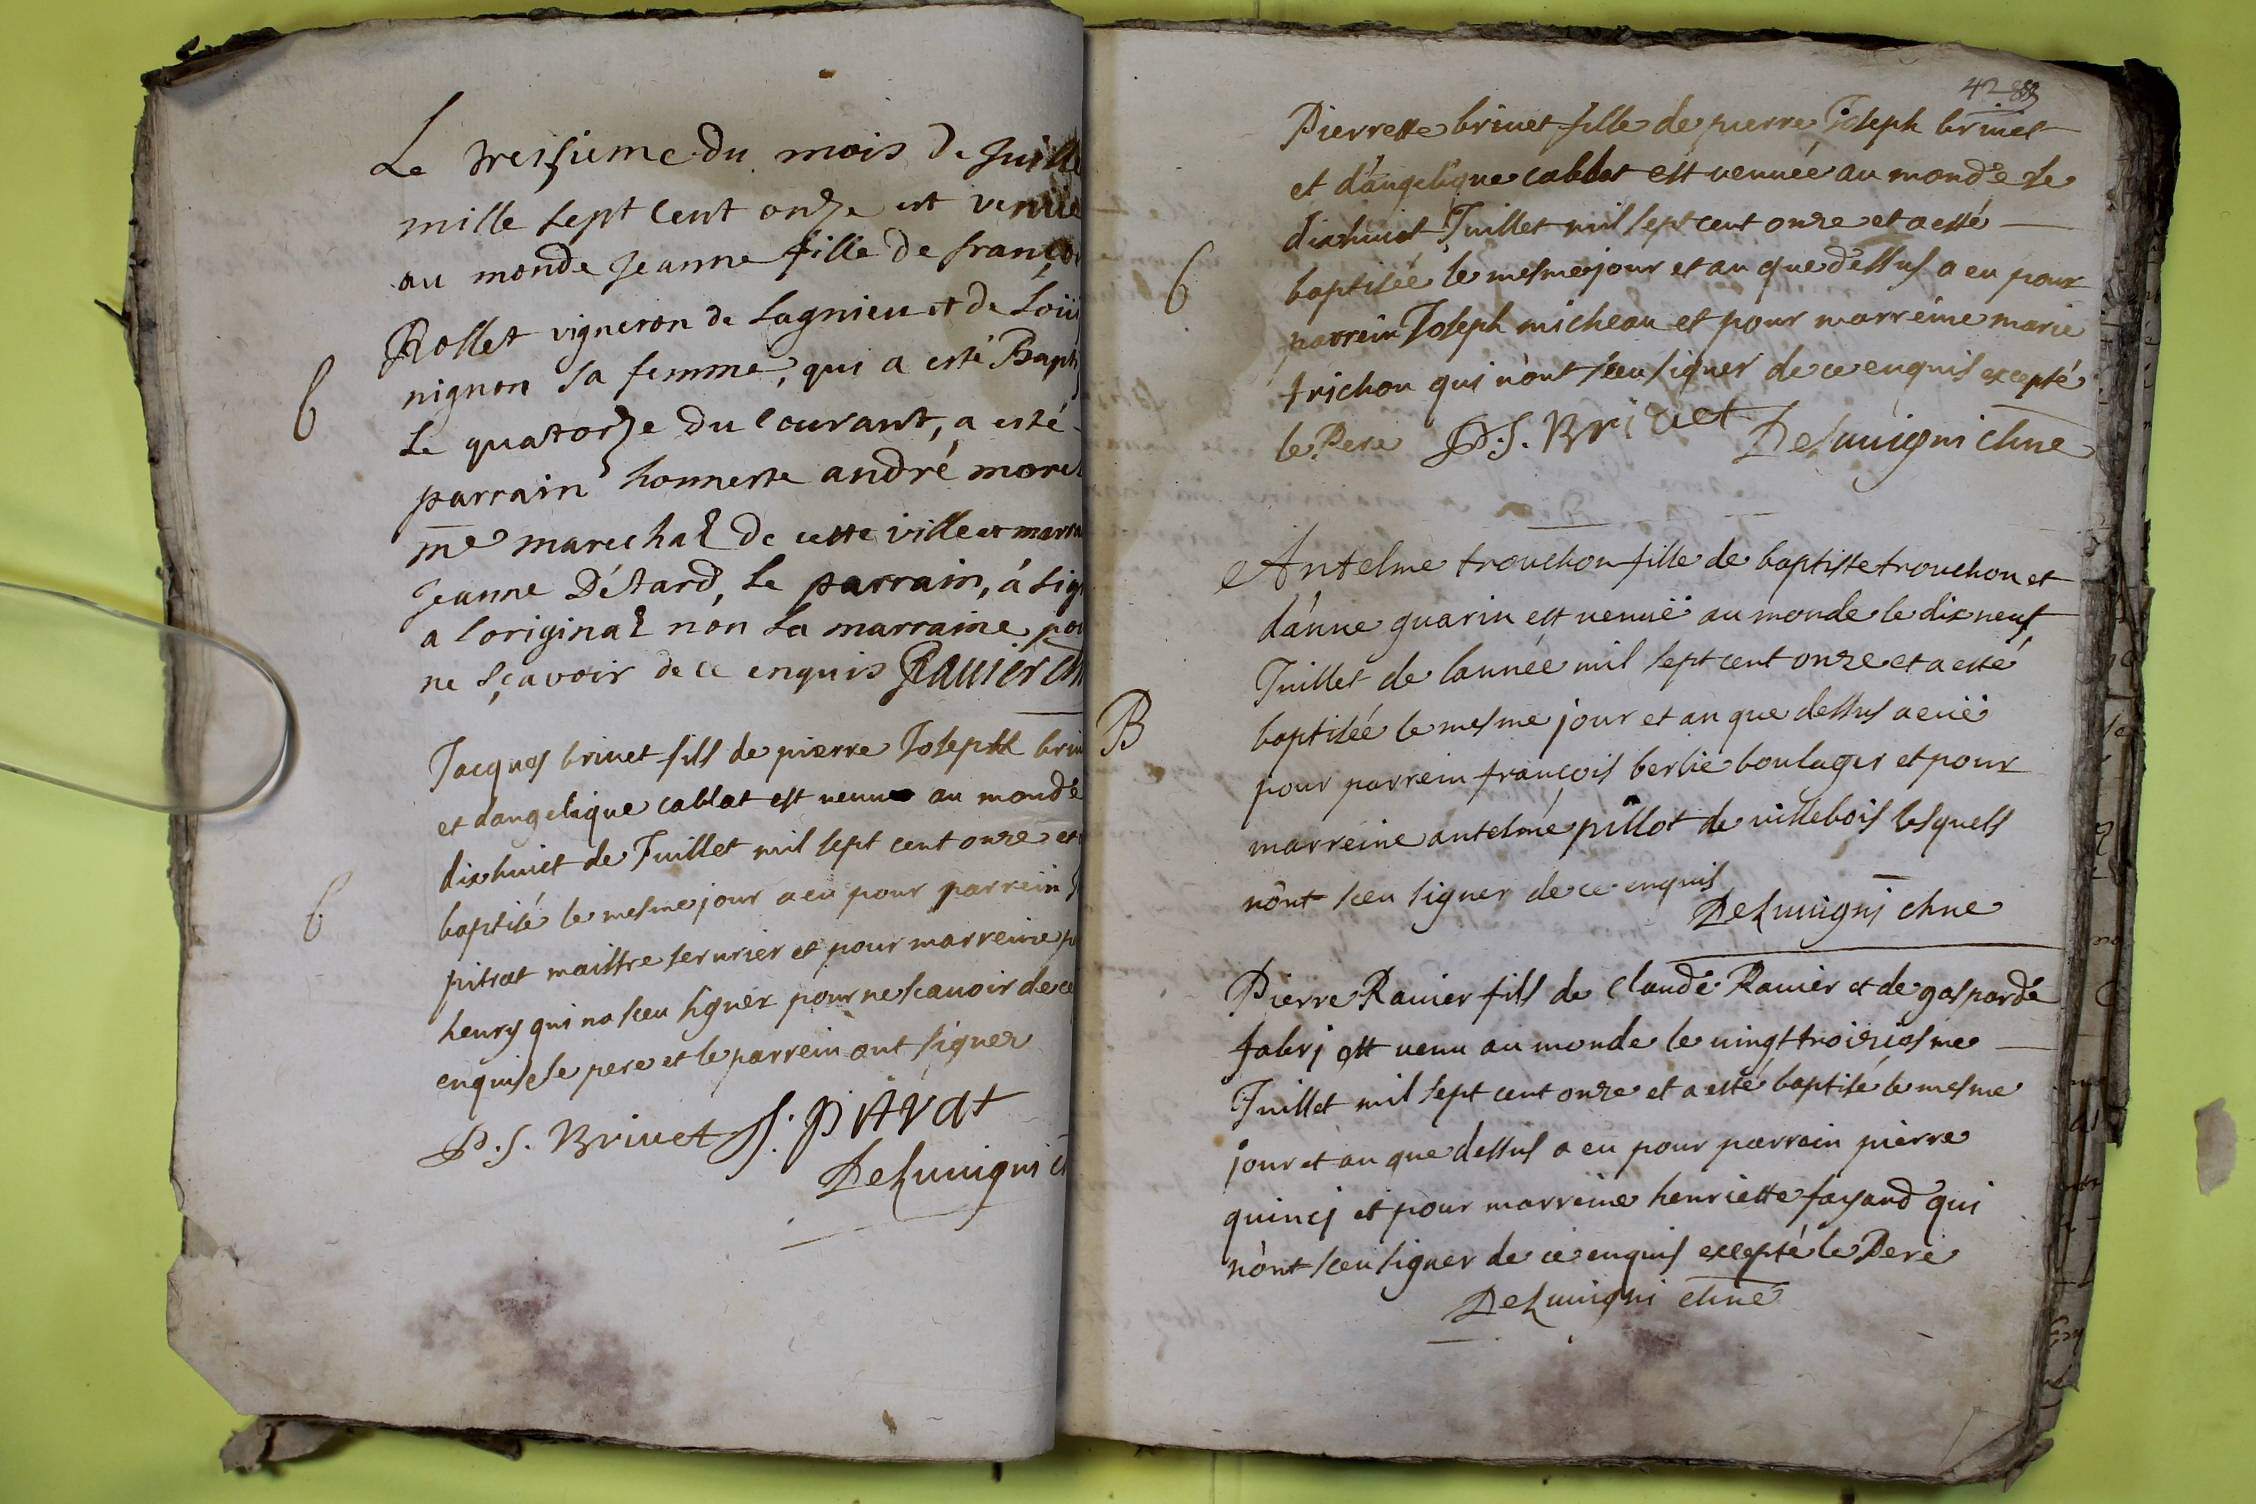 Le treisieme du mois de Juille
mille sept cent onze est venüe
au monde Jeanne fille de françoi
Rollet vigneron de Lagnieu et de Loüi
nignon sa femme, qui a esté Bapti
B
le quatorze du courant, a esté
parrain honneste andré morel
me marechal de cette ville et marra
Jeanne Détard, Le parrain, á sig
a loriginal non la marraine pou
ne sçavoir de ce enquis Ravier ch
Jacques brivet fils de pierre Joseph briv
et dangelique cablat est venu au monde
dixhuict de Juillet mil sept cent onze et
baptisé le mesme jour a eu pour parrein
B
pitrat maistre serurier et pour marreine
henry qui na sceu signer pour ne scavoir de ce
enquis le pere et le parrein ont signez
P. J. Brivet J. Pitrat
Delouvigni ch
42
Pierrette brivet fille de pierre Joseph brivet
et d'angelique cablat est venuée au monde le
dixhuict Juillet mil sept cent onze et a esté
baptisée le mesme jour et an que dessus a eu pour
B
parrein Joseph micheau et pour marréine marie
trichon qui nont sceu signer de ce enquis excepté
le Pere P. J. Brivet Delouvigni chne
Antelme trouchon fille de baptiste trouchon et
d'anne guarin est venuë au monde le dix neuf
Juillet de lannée mil sept cent onze et a esté
baptisée le mesme jour et an que dessus a euë
B
pour parrein françois berlie boulager et pour
marreine antelme pillot de villebois lesquels
nont sceu signer de ce enquis
Delouvigni chne
Pierre Ravier fils de Claude Ravier et de gasparde
fabri est venu au monde le vingt troiziesme
Juillet mil sept cent onze et a esté baptisé le mesme
jour et an que dessus a eu pour parrein pierre
quinci et pour marreine henriette fayard qui
nont sceu signer de ce enquis excepté le Pere
Delouvigni chne